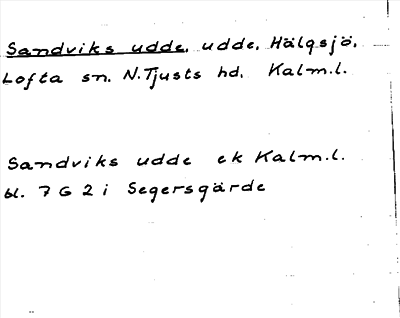 Sandviks udde, udde, Hälgsjö,
Lofta sn. N. Tjusts hd. Kalm.l.
Sandviks udde ek Kalm.l.
bl. 7 G 2 i Segersgärde